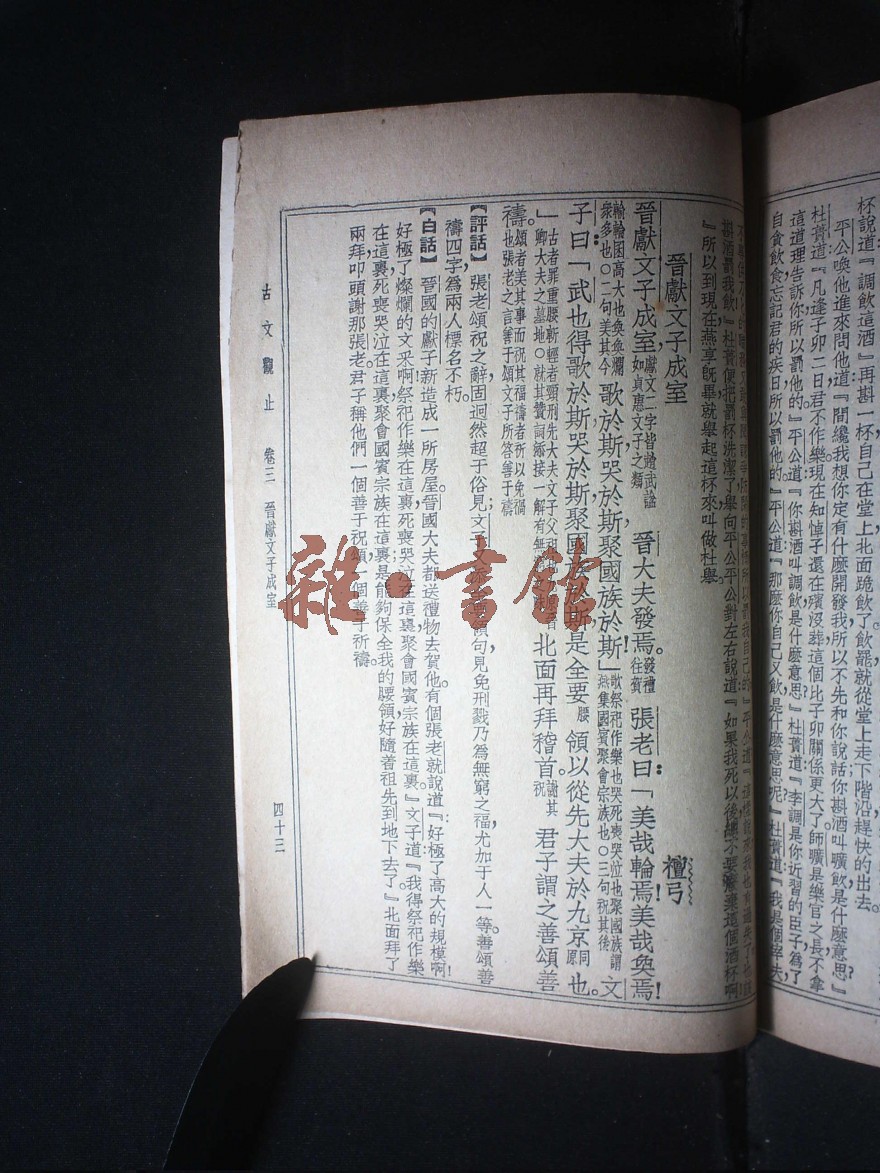 杯說道『調飲這酒』再斟一杯自己在堂上北面跪飲了飲罷就從堂上走下階沿趕快的出去。
平公喚他進來問他道『間纔我想你定有什麽開發我所以不先和你說話你斟酒叫曠飲是什麽意思』
杜蕢道『凡逢子卯二日君不作樂現在知悼子還在殯沒葬這個比子卯關係更大了師曠是樂官之長不拿
這道理告訴你所以罰他的』平公道『你斟酒叫調飲是什麽意思』杜蕢道『李調是你近習的臣子為了
自貪飲食忘記君的疾日所以罰他的』平公道『那麽你自己又飲是什麽意思呢』杜蕢道『我是個宰夫,
斟酒罰我飲』杜蕢便把罰杯洗潔了舉向平公平公對左右說道『如果我死以後
』所以到現在燕享旣畢就舉起這杯來叫做杜舉。
晉獻文子成室 檀弓
晉獻文子成室,獻文二字皆趙武謚如貞惠文子之類 晉大夫發焉。發禮往賀 張老曰:「美哉輪焉!美哉奐焉!
輪輪囷高大也奐奐爛衆多也○二句美其今 歌於斯,哭於斯,聚國族於斯!」歌祭祀作樂也哭死喪哭泣也聚國族謂燕集國賓聚會宗族也○三句祝其後 文
子曰:「武也得歌於斯哭於斯聚國族於斯是全要腰領以從先大夫於九京同原也。
」古者罪重腰斬輕者頸刑先大夫文子父祖 卿大夫之墓地○就其贊詞添接一解有無 北面再拜稽首。謝其祝 君子謂之善頌善
禱。頌者美其事而祝其福禱者所以免禍也張老之言善于頌文子所答善于禱
【評話】張老頌祝之辭固迥然超于俗見文子 句見免刑戮乃為無窮之福尤加于人一等。善頌善
禱四字為兩人標名不朽。
【白話】晉國的獻子新造成一所房屋。晉國大夫都送禮物去賀他有個張老就說道『好極了高大的規模啊!
好極了燦爛的文采啊!祭祀作樂在這裏死喪哭泣在這裏聚會國賓宗族在這裏』文子道『我得祭祀作樂
在這裏死喪哭泣在這裏聚會國賓宗族在這裏是能夠保全我的腰領好隨着祖先到地下去了。』北面拜了
兩拜叩頭謝那張老君子稱他們一個善于祝頌一個善于祈禱。
古文觀止 卷三 晉獻文子成室 四十三
雜·書館